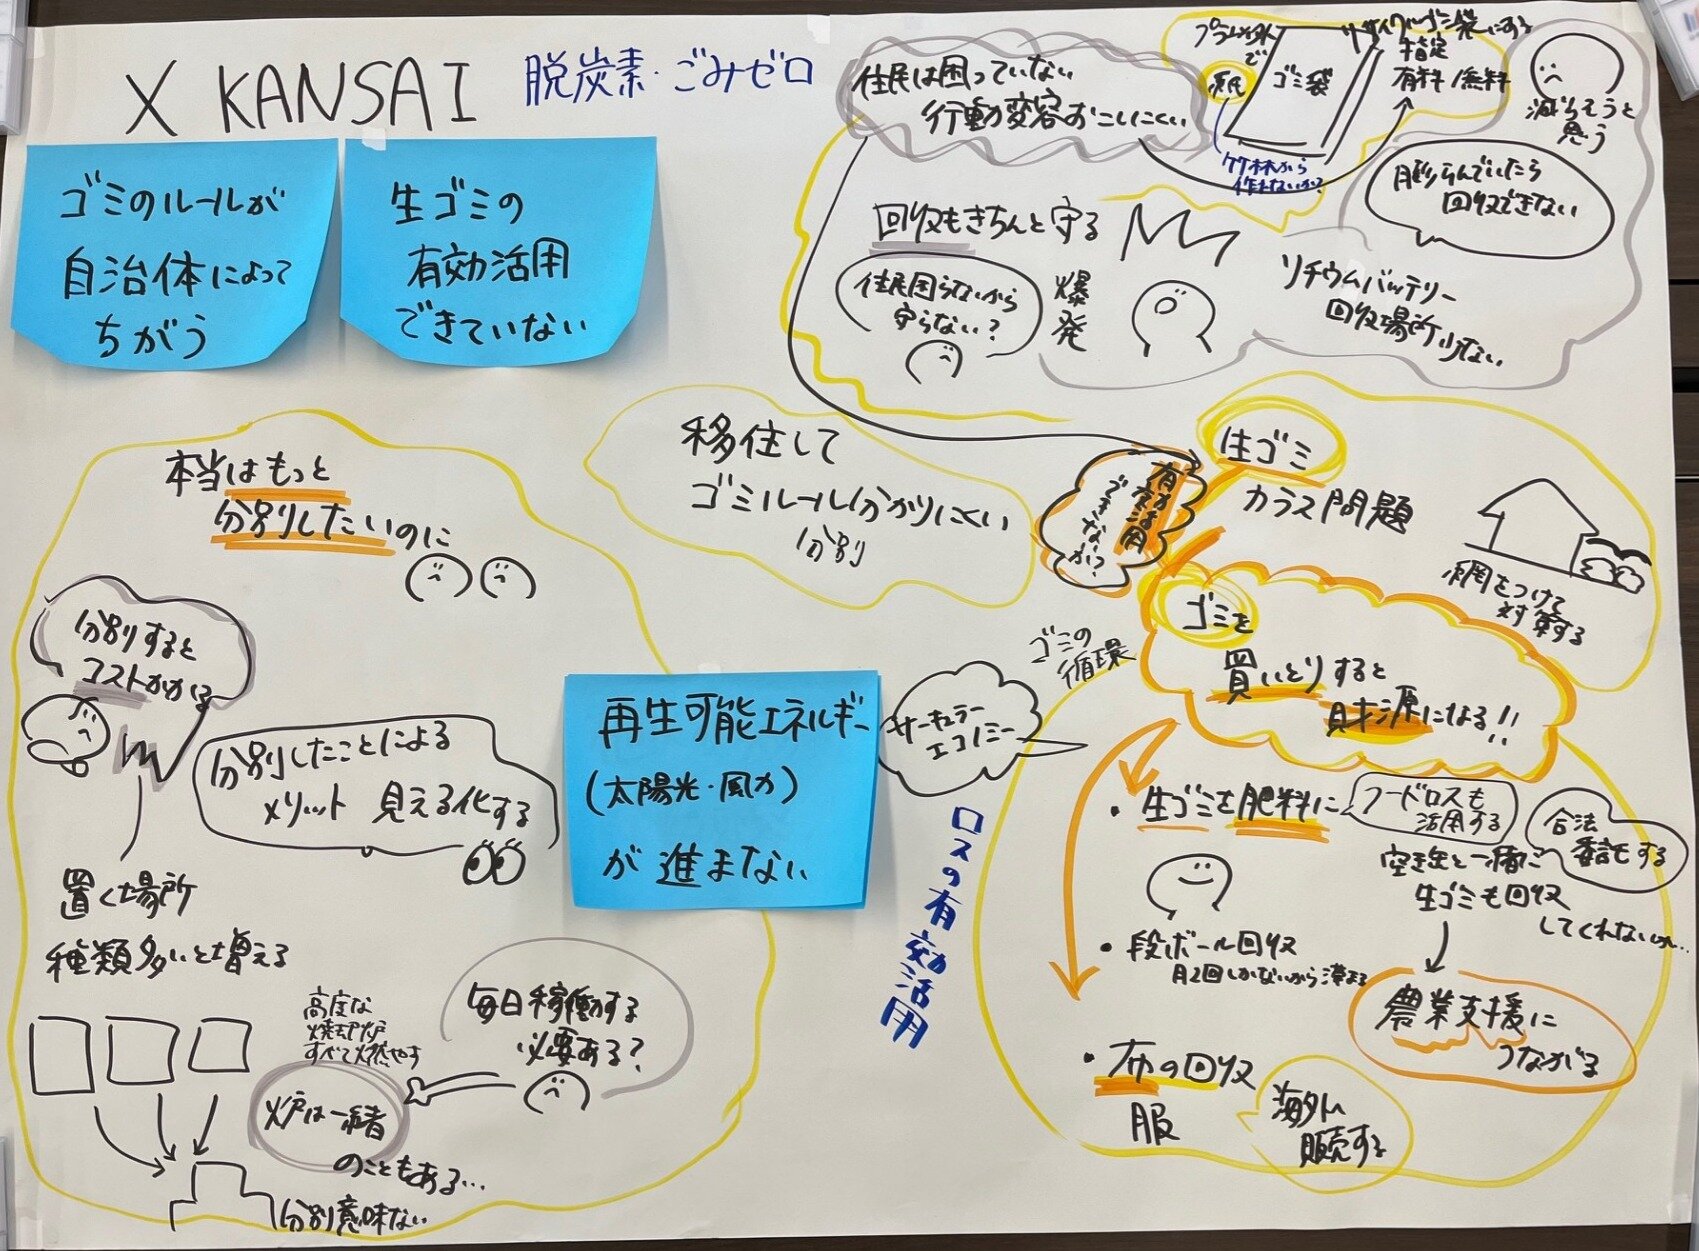 X KANSAI
脱炭素・ごみゼロ
ゴミのルールが
自治体によって
ちがう
生ゴミの
有効活用
できていない
住民は困っていない
行動変容おこしにくい
プラ以外
で
紙
ゴミ袋
リサイクルゴミ袋にする
指定
有料/無料
竹林から
作れないか?
減らそうと
思う
膨らんでいたら
回収できない
回収もきちんと守る
住民困らないから
守らない?
爆発
リチウムバッテリー
回収場所少ない
移住して
ゴミルール分かりにくい
分別
有効活用
できないか?
生ゴミ
カラス問題
網をつけて
対策する
本当はもっと
分別したいのに
分別すると
コストかかる
分別したことによる
メリット 見える化する
置く場所
種類多いと増える
高度な
焼却炉
すべて燃やす
毎日稼働する
必要ある?
炉は一緒
のこともある…
分別意味ない
再生可能エネルギー
(太陽光・風力)
が進まない
ゴミの
循環
サーキュラー
エコノミー
ロスの有効活用
ゴミを
買いとりすると
財源になる!!
・生ゴミを肥料に
フードロスも
活用する
合法
委託する
空き缶と一緒に
生ゴミも回収
してくれないか…
・段ボール回収
月2回しかないから溜まる
農業支援に
つながる
・布の回収
服
海外へ
販売する